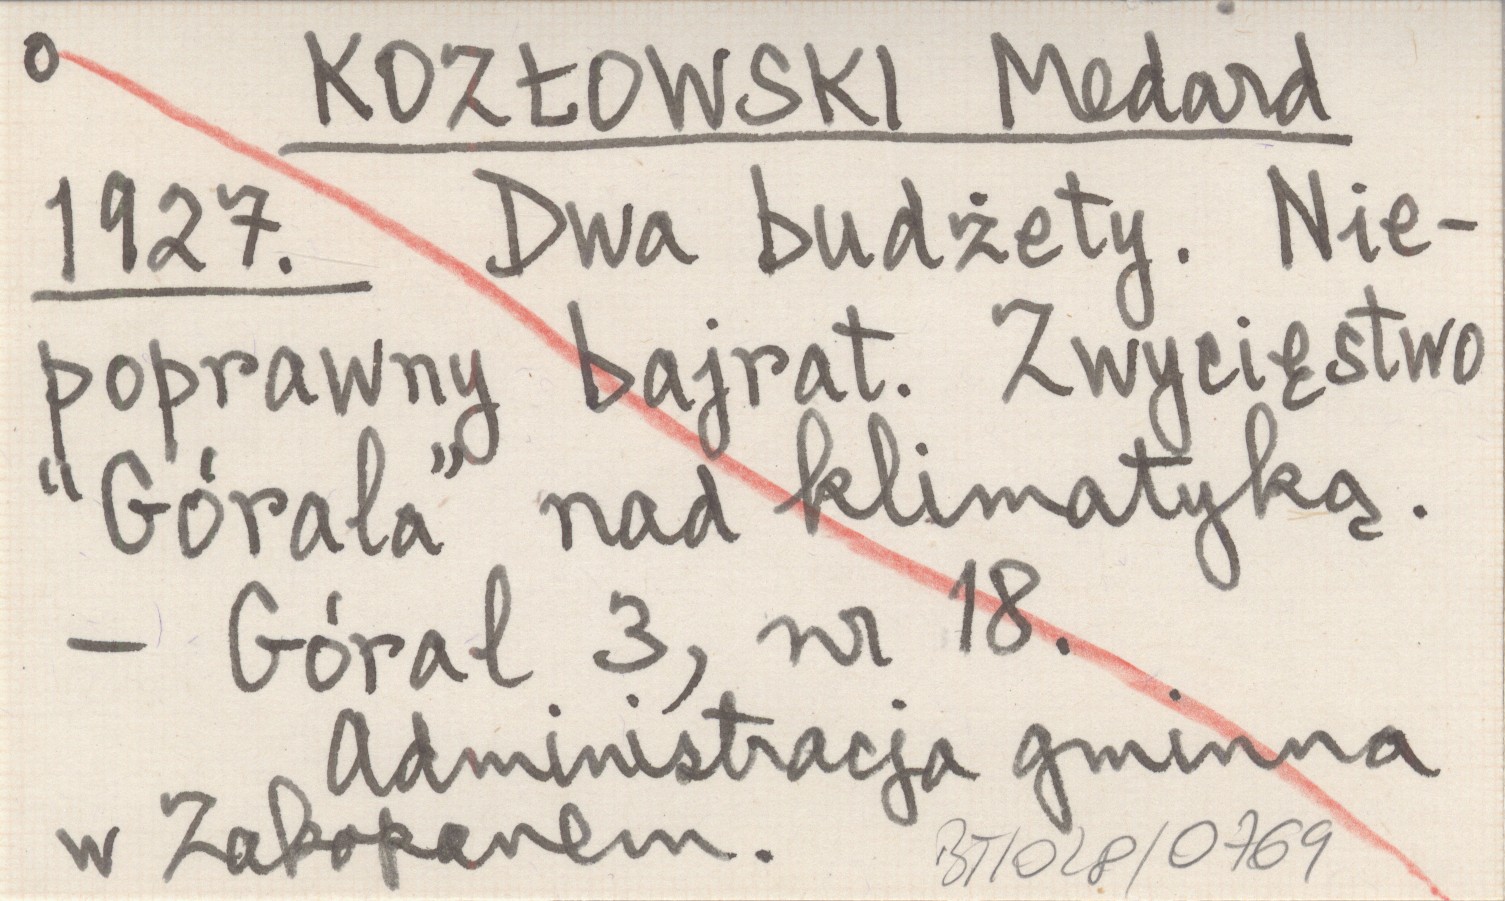 o KOZŁOWSKI Medard
1927. Dwa budżety. Nie-
poprawny bajrat. Zwycięstwo
“Górala” nad klimatyką.
— Góral 3, nr 18.
Administracja gminna
w Zakopanem.
BT/028/0769